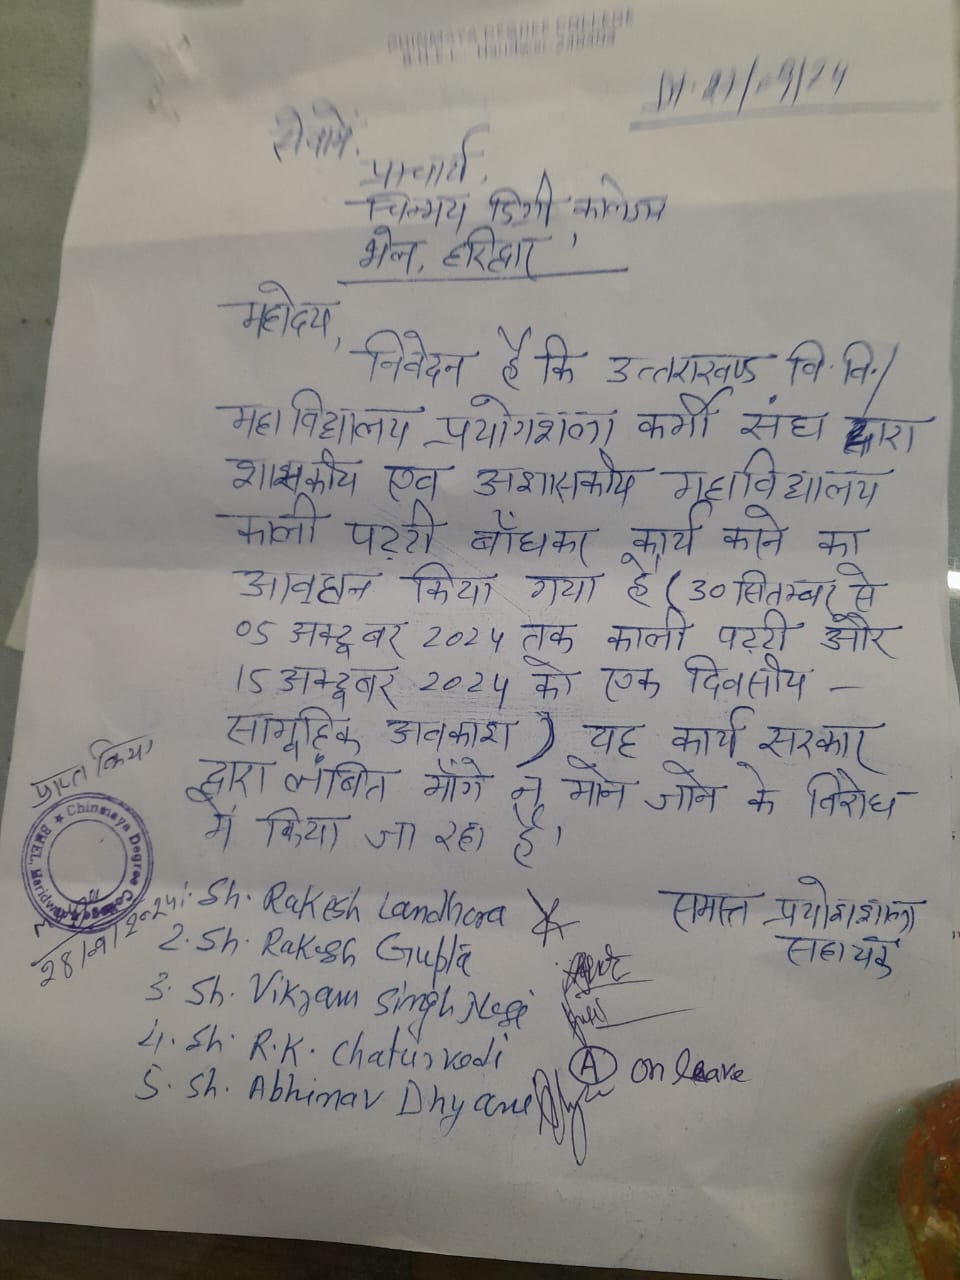 CHINMAYA DEGREE COLLEGE
B.H.E.L. Haridwar-249403
Dt. 27/09/24
सेवामें,
प्राचार्य,
चिन्मय डिग्री कालेज,
भेल, हरिद्वार
महोदय,
निवेदन है कि उत्तराखण्ड वि.वि./
महाविद्यालय प्रयोगशाला कर्मी संघ द्वारा
शासकीय एवं अशासकीय महाविद्यालय
काली पट्टी बाँधकर कार्य करने का
आवहान किया गया है (30 सितम्बर से
05 अक्टूबर 2024 तक काली पट्टी और
15 अक्टूबर 2024 को एक दिवसीय -
सामूहिक अवकाश) यह कार्य सरकार
द्वारा लंबित माँगे न माने जाने के विरोध
में किया जा रहा है।
समस्त प्रयोगशाला
सहायक
1. Sh. Rakesh Landhora
2. Sh. Rakesh Gupta
3. Sh. Vikram Singh Negi
4. Sh. R.K. Chaturvedi (A) on leave
5. Sh. Abhinav Dhyani
प्राप्त किया
Chinmaya Degree College
BHEL, Haridwar
28/9/2024